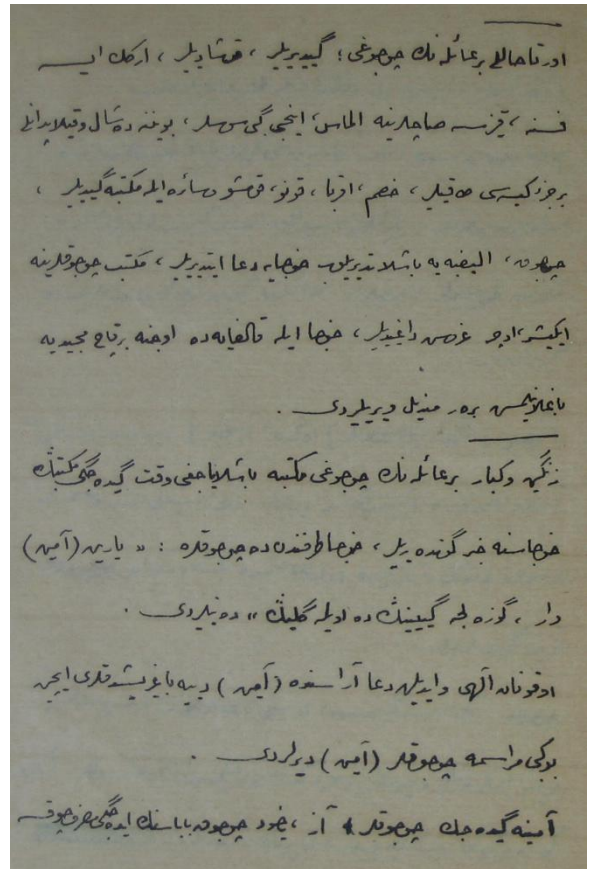 اورتا حاللی بر عائله نك چوجوغی ؛ گییدیریلیر ، قوشادیلیر ، اركك ایسه
فسنه ، قیزسه صاچلرینه الماس ، اینجی گبی سوسلر ، بویننه ده شال و قیلاپدانلی
بر جزء كیسه سی طاقیلیر ، خصم ، اقربا ، قونو ، قومشو و سائره ایله مكتبه گیدیلیر ،
چوجوق ، الیفبه یه باشلاتدیریلوب خوجایه دعا ایتدیریلیر ، مكتب چوجوقلرینه
ایكیشر ، اوچر غروش داغیدیلیر ، خوجا ایله قالفایه ده اوجنه برقاچ مجیدیه
باغلانیلمش برر مندیل ویریلیردی .
زنگین و كبار بر عائله نك چوجوغی مكتبه باشلایاجغی وقت گیده جگی مكتبڭ
خوجاسنه خبر گوندریلیر ، خوجا طرفندن ده چوجوقلره : « یارین (آمین)
وار ، گوزلجه گیینڭ ده اویله گلیڭ » ده نیلیردی .
اوقونان الهی و ایدیلن دعا آراسنده (آمین) دییه باغریشدقلری ایچین
بوگبی مراسمه چوجوقلر (آمین) دیرلردی .
آمینه گیده جك چوجوقلر آز ، یاخود چوجوغڭ باباسنك ایده جگی مصرف چوقسه